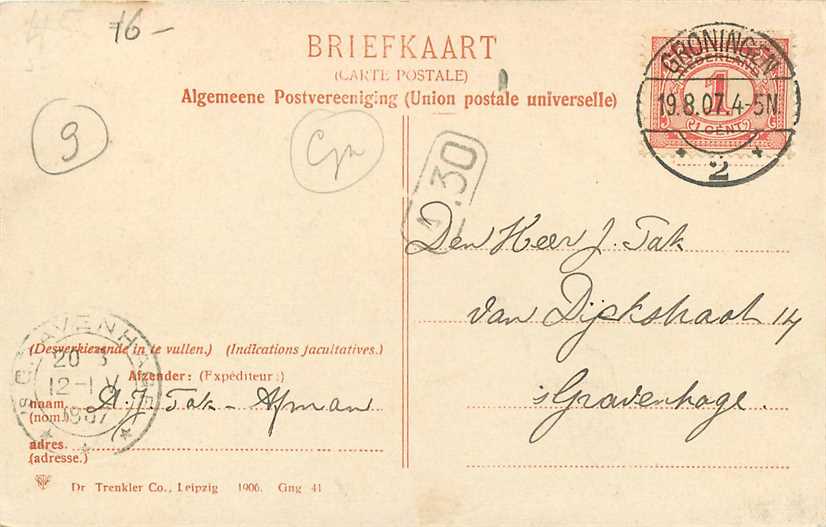 16 -
BRIEFKAART
(CARTE POSTALE)
Algemeene Postvereeniging (Union postale universelle)
GRONINGEN
19.8.07.4-5N
2
NEDERLAND
1
1 CENT
9
.30
Den Heer J. Tak
van Dijckstraat 14
's Gravenhage.
(Desverkiezende in te vullen.) (Indications facultatives.)
Afzender: (Expéditeur:)
naam. Tak - Afman
(nom.)
adres.
(adresse.)
'S GRAVENHAGE
20 8
12-1 V
1907
Dr Trenkler Co., Leipzig 1906. Gng 41